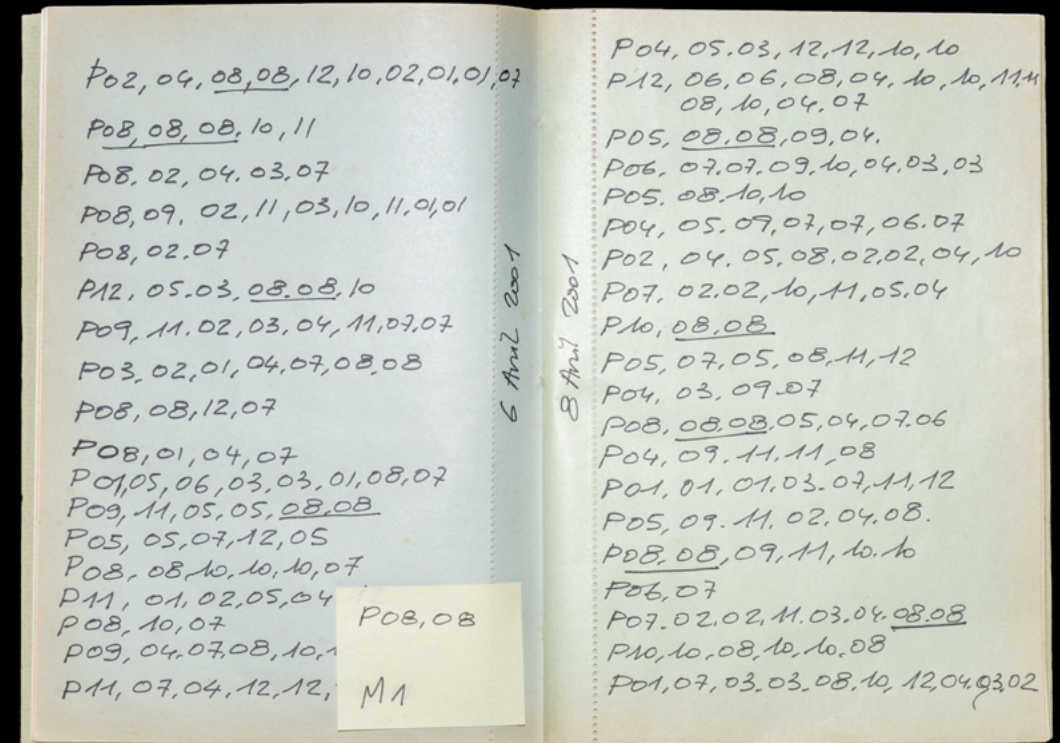 P02, 04, 08, 08, 12, 10, 02, 01, 01, 07
P08, 08, 08. 10, 11
P08. 02, 04. 03. 07
P08, 09. 02, 11, 03, 10, 11. 01, 01
P08, 02. 07
P12, 05. 03. 08. 08. 10
P09, 11. 02, 03, 04, 11, 07, 07
P03, 02, 01, 04, 07, 08, 08
P08, 08, 12, 07
P08, 01, 04, 07
P01, 05, 06, 03, 03, 01, 08, 07
P09, 11, 05, 05, 08.08
P05, 05, 07, 12, 05
P08, 08, 10, 10, 10, 07
P11, 01, 02, 05, 04
P08, 10, 07
P09, 04. 07. 08, 10,
P11, 07, 04, 12, 12,
P08, 08
M1
6 Avril 2001
8 Avril 2001
P04, 05. 03, 12, 12, 10, 10
P12, 06, 06, 08, 04, 10, 10, 11, 11
08, 10, 04. 07
P05, 08.08, 09, 04.
P06, 07. 07. 09. 10, 04. 03, 03
P05. 08. 10, 10
P04, 05. 09, 07, 07, 06. 07
P02, 04. 05, 08. 02, 02, 04, 10
P07, 02. 02, 10, 11, 05. 04
P10, 08.08
P05, 07, 05. 08, 11, 12
P04, 03, 09.07
P08, 08.08, 05, 04, 07. 06
P04, 09. 11. 11, 08
P01, 01, 01. 03. 07, 11, 12
P05, 09. 11. 02, 04. 08.
P08.08, 09, 11, 10. 10
P06, 07
P07. 02. 02, 11. 03. 04. 08.08
P10, 10, 08, 10, 10, 08
P01, 07, 03. 03. 08. 10, 12, 04, 03, 02